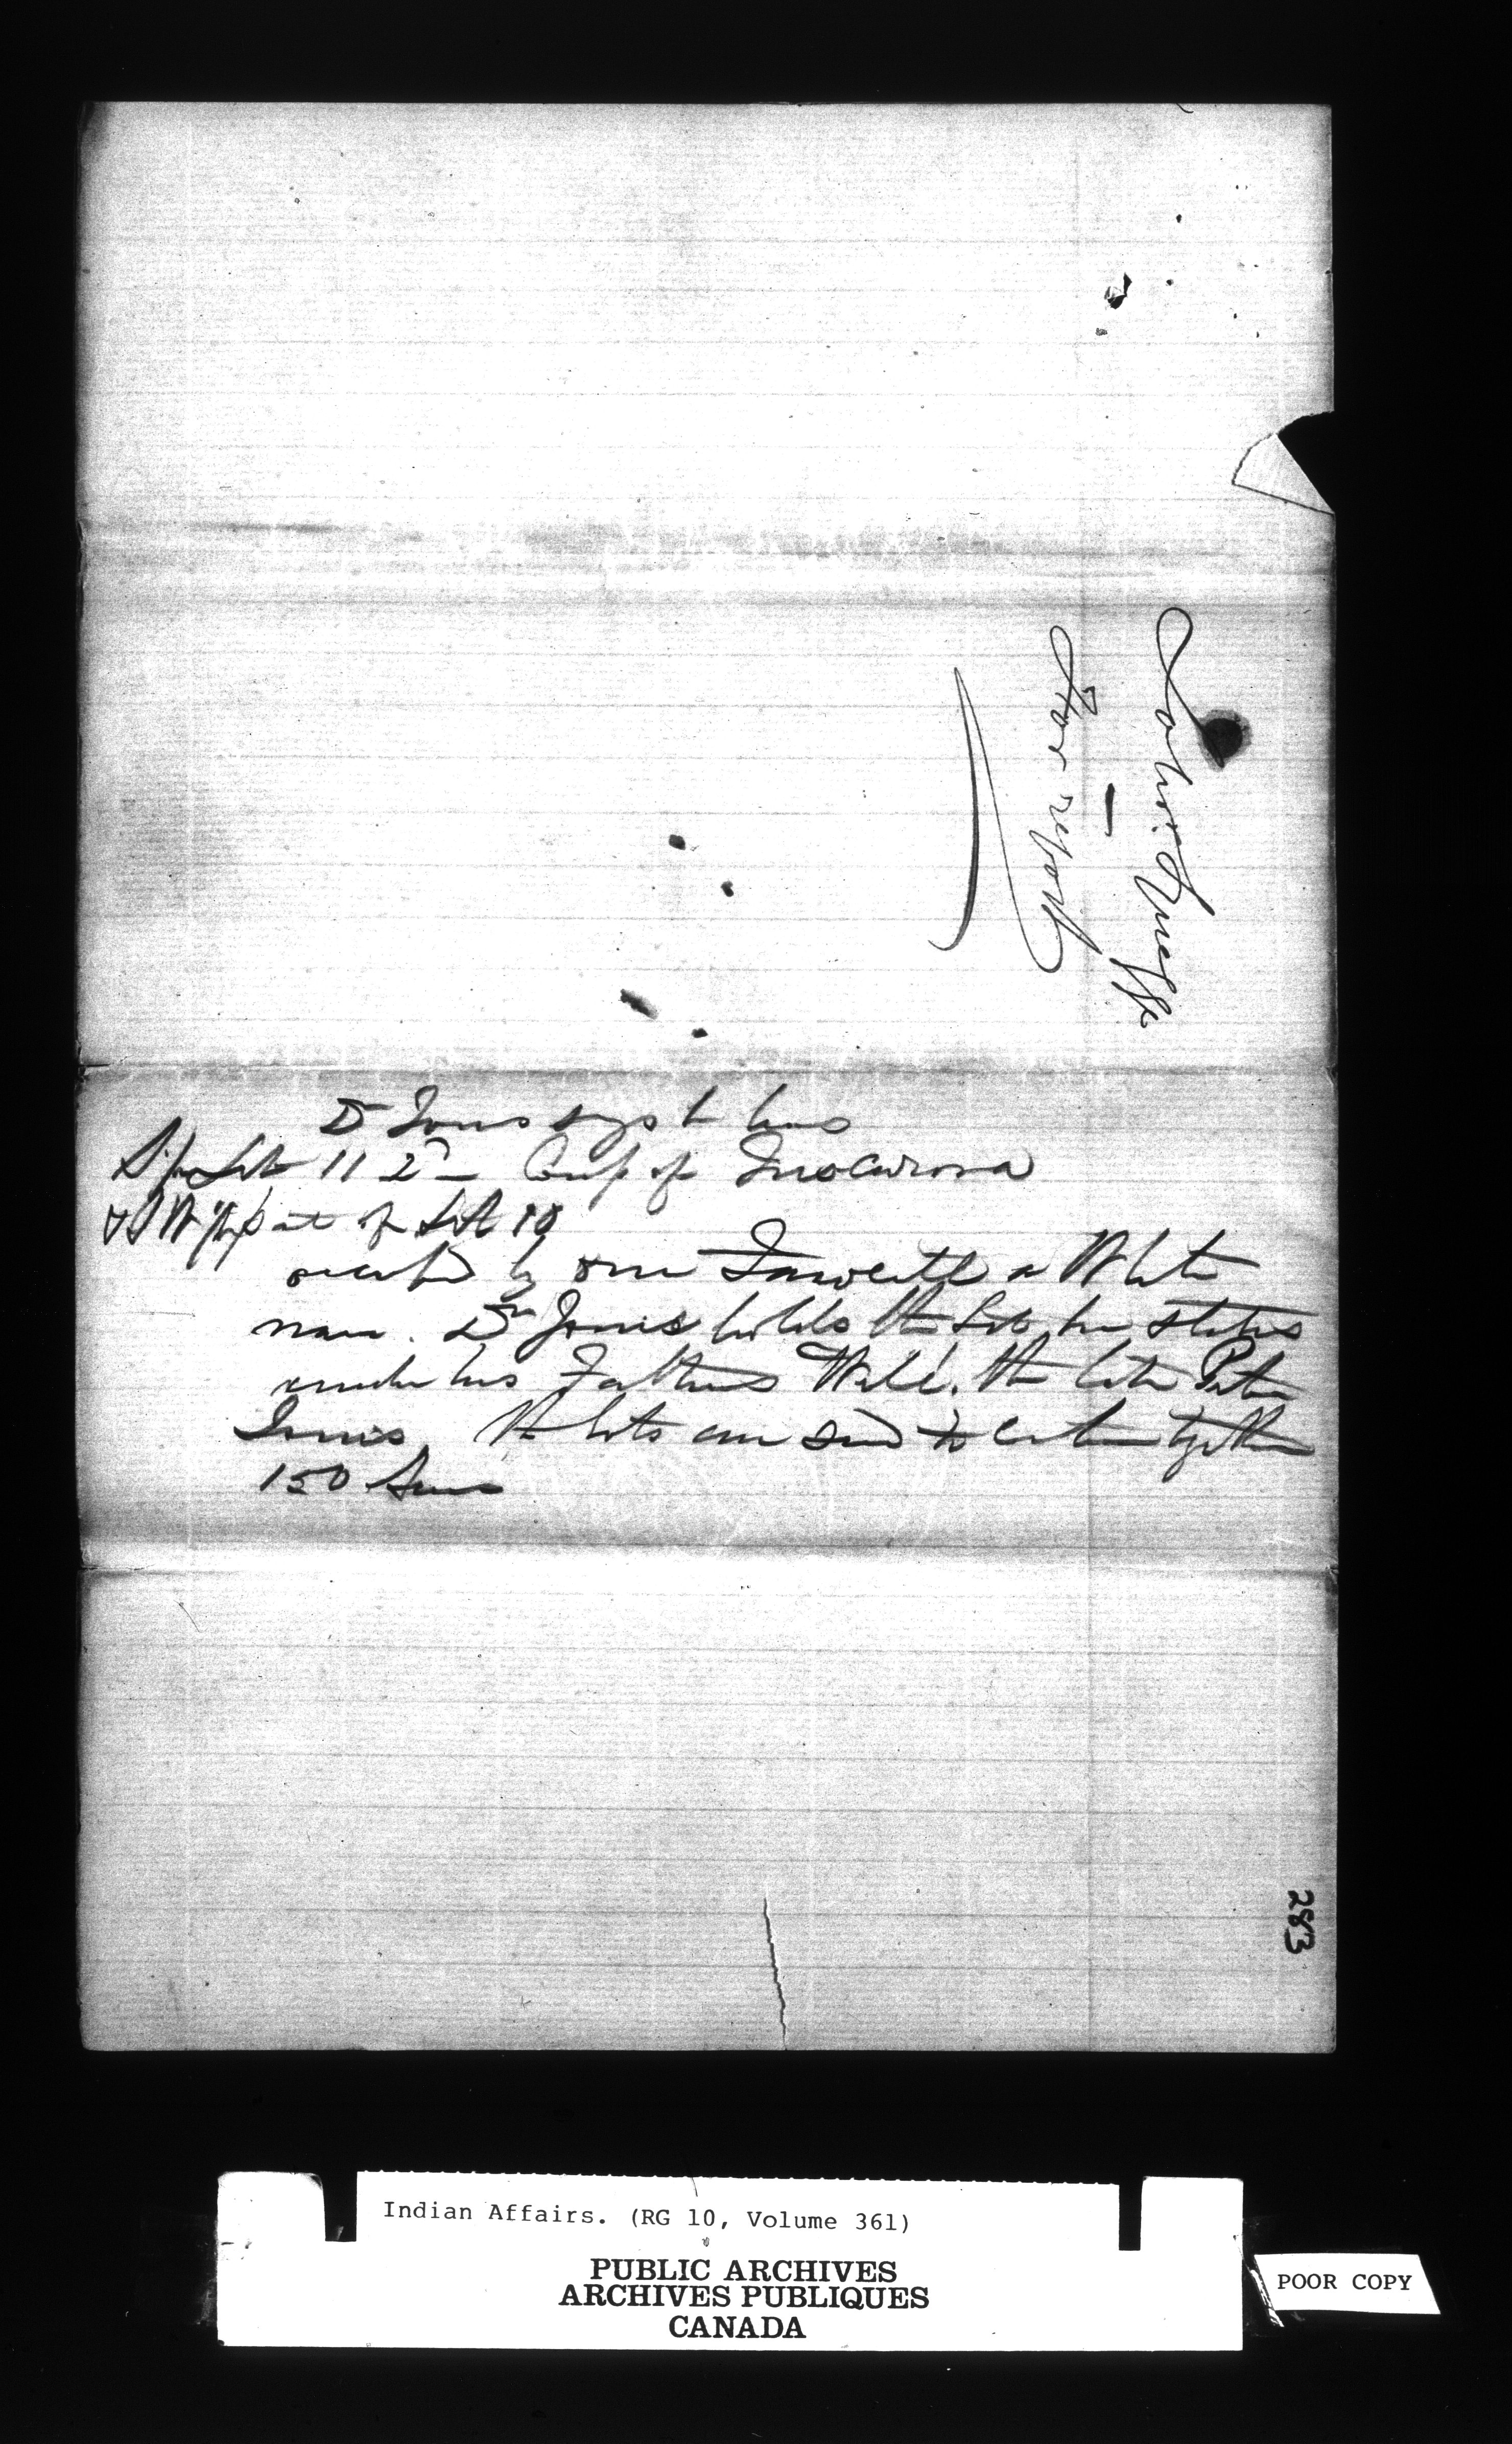 For report
Dr Jones says he has
Lot 11 2d Con of Tuscarora
& part of Lot 10
occupied by one Fawcett a White
man. Dr Jones holds the Lots he states
under his Fathers Will, the late Peter
Jones. The lots are said to contain together
150 Acres
283
Indian Affairs. (RG 10, Volume 361)
PUBLIC ARCHIVES
ARCHIVES PUBLIQUES
CANADA
POOR COPY